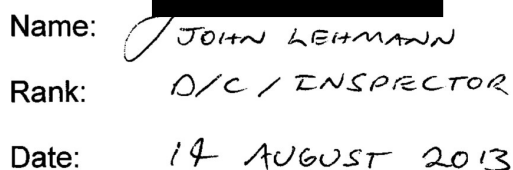 Name: JOHN LEHMANN
Rank: D/C/INSPECTOR
Date: 14 AUGUST 2013